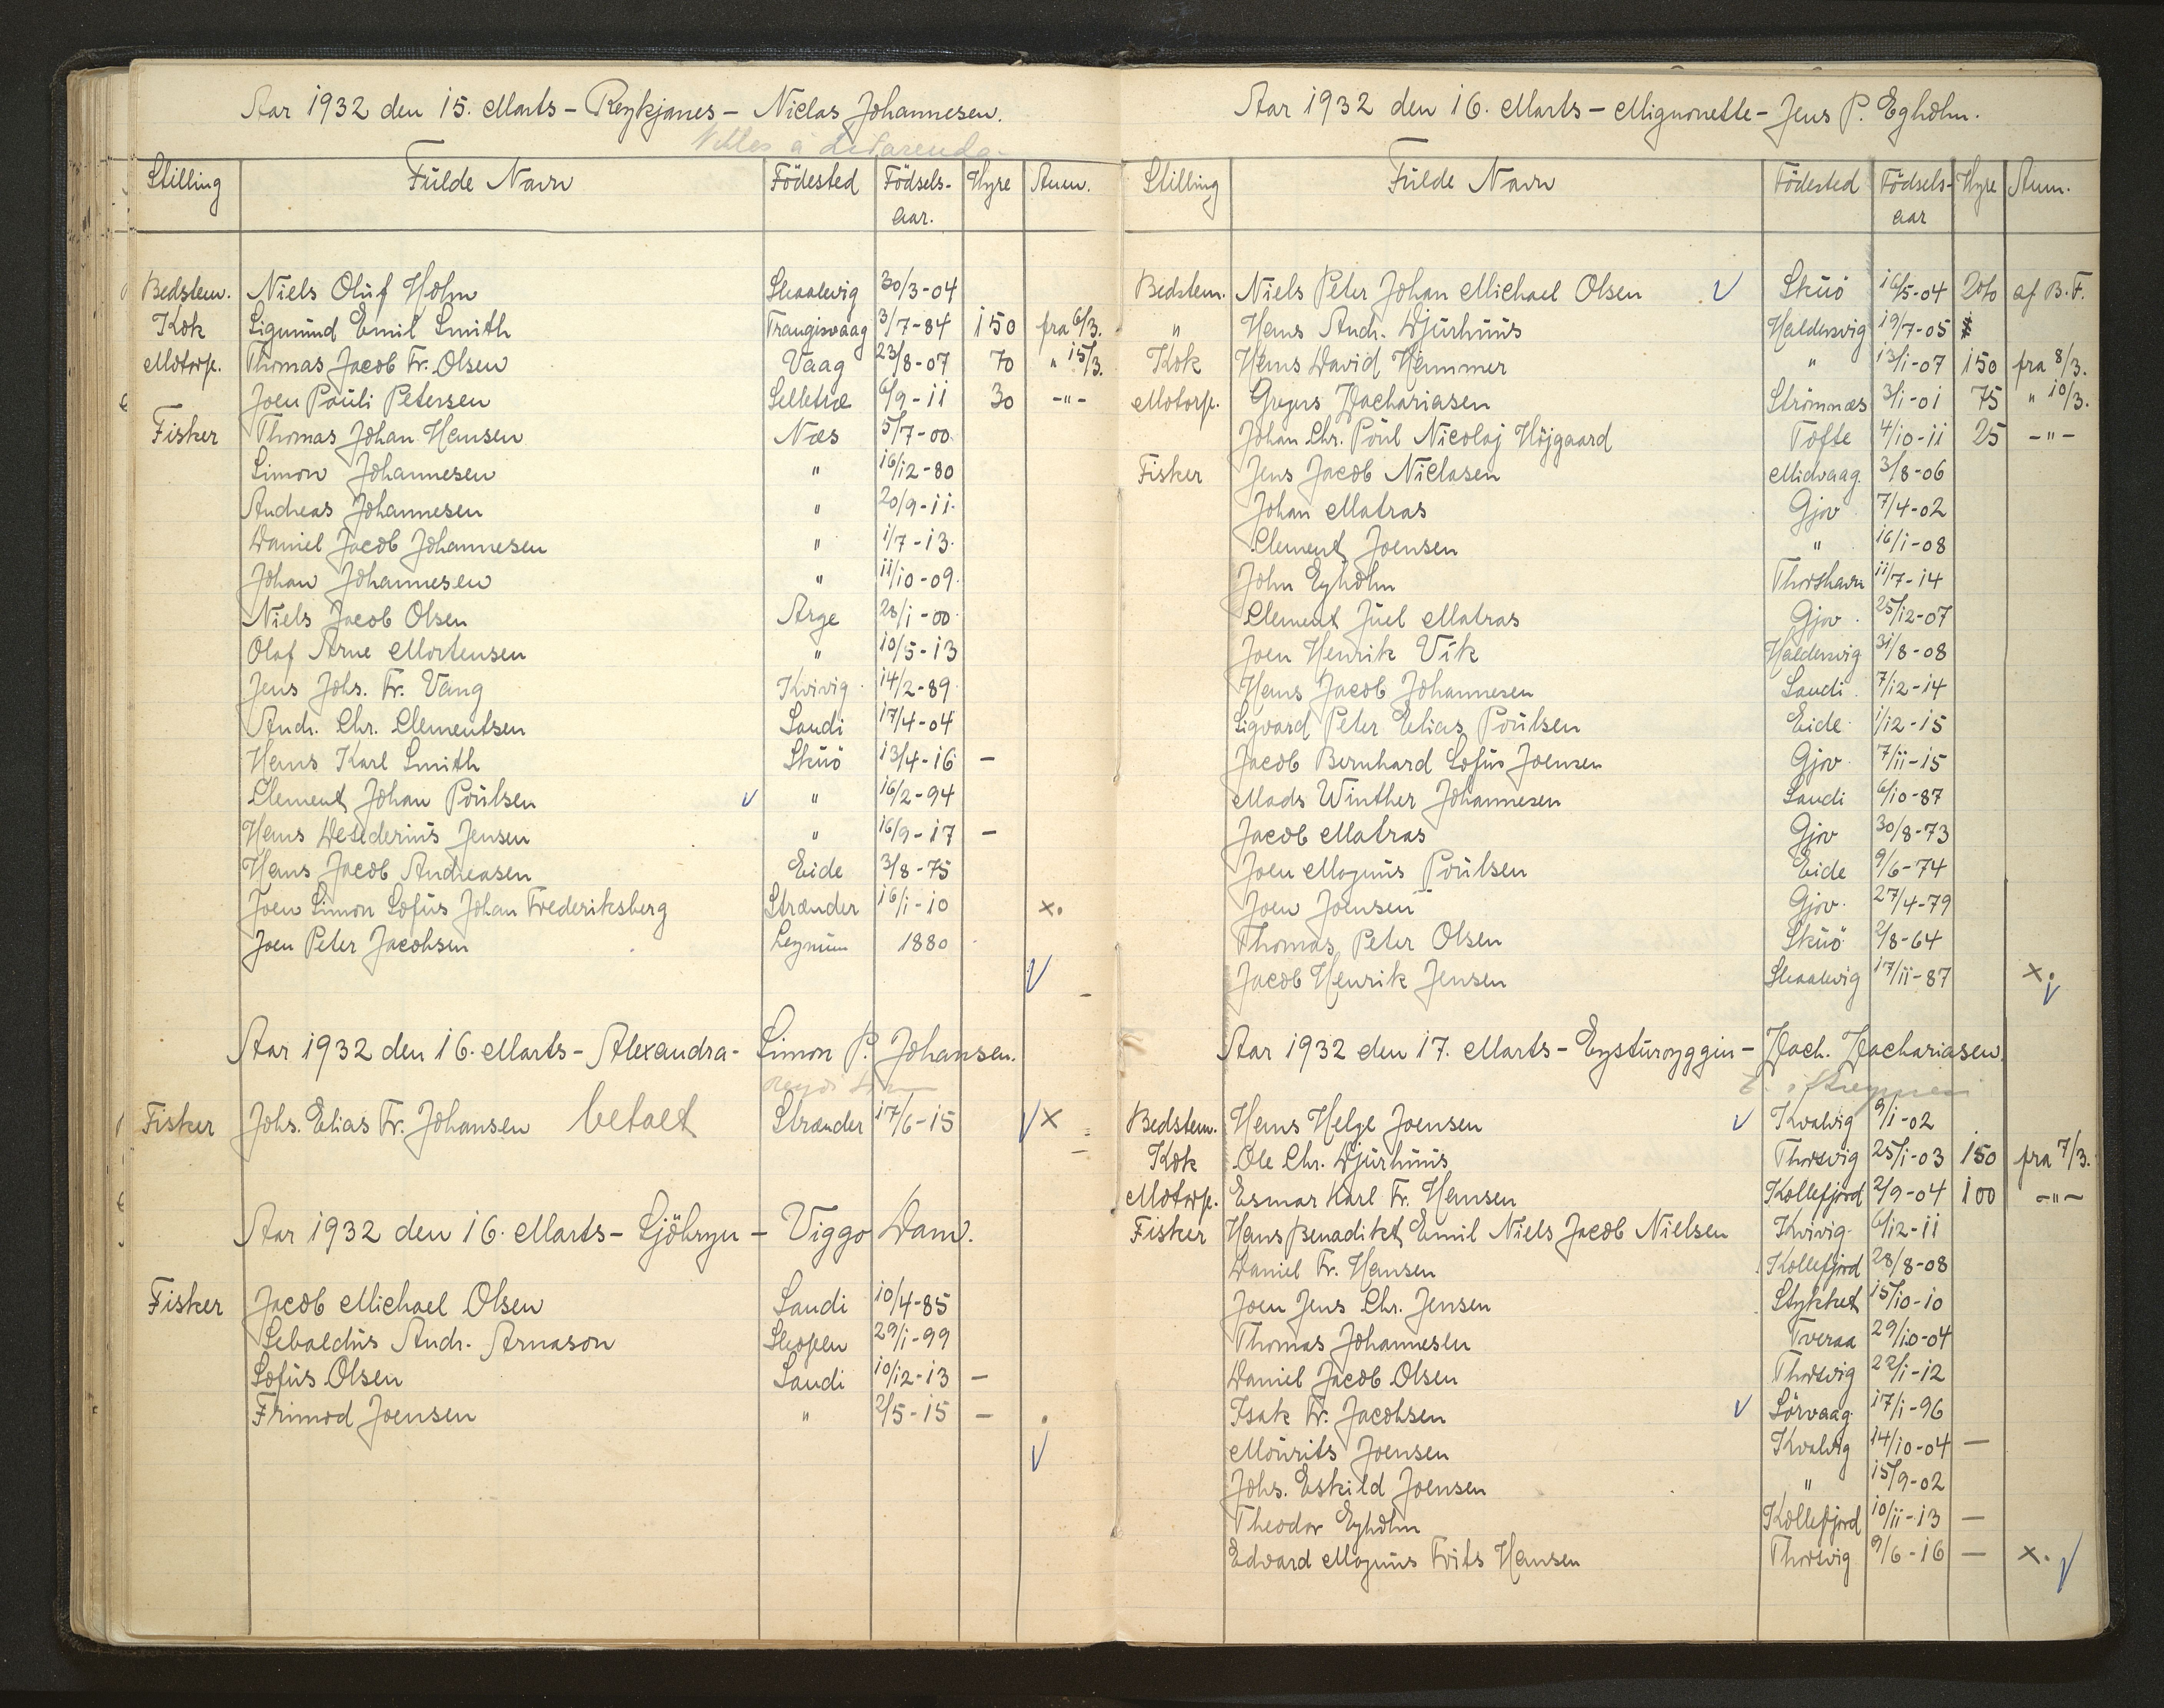 Aar 1932 den 15. Marts – Reykjanes – Niclas Johannesen.
Stilling Fulde Navn Födested Födsels- Hyre Anm.
aar.
Bedstem. Niels Oluf Holm Skaalevig 30/3-04
Kok Sigmund Emil Smith Trangisvaag 3/7-84 150 fra 6/3.
Motorp. Thomas Jacob Fr. Olsen Vaag 23/8-07 70 " 15/3.
Joen Pauli Petersen Selletræ 6/9-11 30 -"-
Fisker Thomas Johan Hansen Næs 5/7-00
Simon Johannesen " 16/12-80
Andreas Johannesen " 20/9-11
Daniel Jacob Johannesen " 1/7-13
Johan Johannesen " 11/10-09
Niels Jacob Olsen Arge 28/1-00
Olaf Arne Mortensen " 10/5-13
Jens Johs. Fr. Vang Kvivig 14/2-89
Andr. Chr. Clementsen Sandi 17/4-04
Hans Karl Smith Skuö 13/4-16 –
Clement Johan Poulsen ✓ " 16/2-94
Hans Desiderius Jensen " 16/9-17 –
Hans Jacob Andreasen Eide 3/8-75
Joen Simon Sofus Johan Frederiksberg Strænder 16/1-10 x.
Joen Peter Jacobsen Leynum 1880
✓
Aar 1932 den 16. Marts – Alexandra – Simon P. Johansen.
Fisker Johs. Elias Fr. Johansen betalt Strænder 17/6-15 ✓ x
Aar 1932 den 16. Marts – Sjöbryn – Viggo Dam.
Fisker Jacob Michael Olsen Sandi 10/4-85
Sebaldus Andr. Arnason Skopen 29/1-99
Sofus Olsen Sandi 10/12-13 –
Frimod Joensen " 2/5-15 –
✓
Aar 1932 den 16. Marts – Mignonette – Jens P. Egholm.
Stilling Fulde Navn Födested Födsels- Hyre Anm.
aar
Bedstem. Niels Peter Johan Michael Olsen ✓ Skuö 16/5-04 20% af B.F.
" Hans Andr. Djurhuus Haldersvig 19/7-05
Kok Hans David Hammer " 13/1-07 150 fra 8/3.
Motorp. Gregers Zachariasen Strömnæs 3/1-01 75 " 10/3.
Johan Chr. Poul Nicolaj Höjgaard Tofte 4/10-11 25 -"-
Fisker Jens Jacob Niclasen Midvaag 3/8-06
Johan Matras Gjov 7/4-02
Clement Joensen " 16/1-08
John Egholm Thorshavn 11/7-14
Clement Juel Matras Gjov 25/12-07
Joen Henrik Vik Haldersvig 31/8-08
Hans Jacob Johannesen Sandi 7/12-14
Sigvard Peter Elias Poulsen Eide 1/12-15
Jacob Bernhard Sofus Joensen Gjov 7/11-15
Mads Winther Johannesen Sandi 6/10-87
Jacob Matras Gjov 30/8-73
Joen Magnus Poulsen Eide 9/6-74
Joen Joensen Gjov 27/4-79
Thomas Peter Olsen Skuö 2/8-64
Jacob Henrik Jensen Skaalevig 17/11-87 x. ✓
Aar 1932 den 17. Marts – Eysturoyggin – Zach. Zachariasen.
Bedstem. Hans Helge Joensen ✓ Kvalvig 9/1-02
Kok Ole Chr. Djurhuus Thorsvig 25/1-03 150 fra 7/3.
Motorp. Esmar Karl Fr. Hansen Kollefjord 2/9-04 100 -"-
Fisker Hans Benadikt Emil Niels Jacob Nielsen Kvivig 6/12-11
Daniel Fr. Hansen Kollefjord 28/8-08
Joen Jens Chr. Jensen Stykket 15/10-10
Thomas Johannesen Tveraa 29/10-04
Daniel Jacob Olsen Thorsvig 22/1-12
Isak Fr. Jacobsen ✓ Sörvaag 17/1-96
Mourits Joensen Kvalvig 14/10-04 –
Johs. Eskild Joensen " 15/9-02
Theodor Egholm Kollefjord 10/11-13 –
Edvard Magnus Frits Hansen Thorsvig 9/6-16 – x. ✓